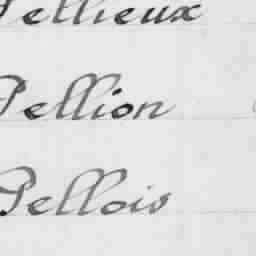 Pellieux
Pellion
Pellois